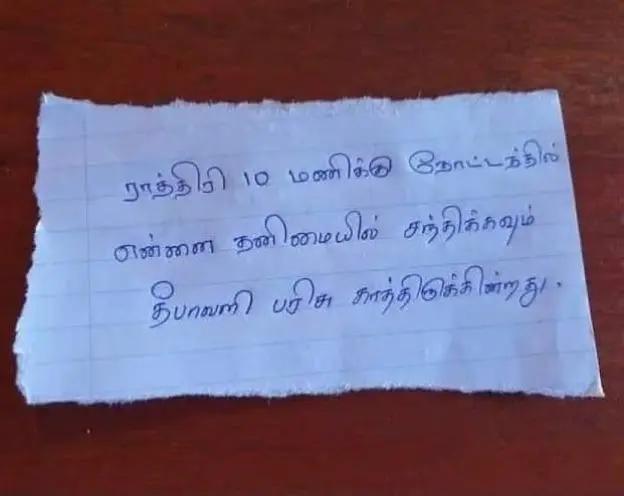 ராத்திரி 10 மணிக்கு தோட்டத்தில்
என்னை தனிமையில் சந்திக்கவும்
தீபாவளி பரிசு காத்திருக்கின்றது.